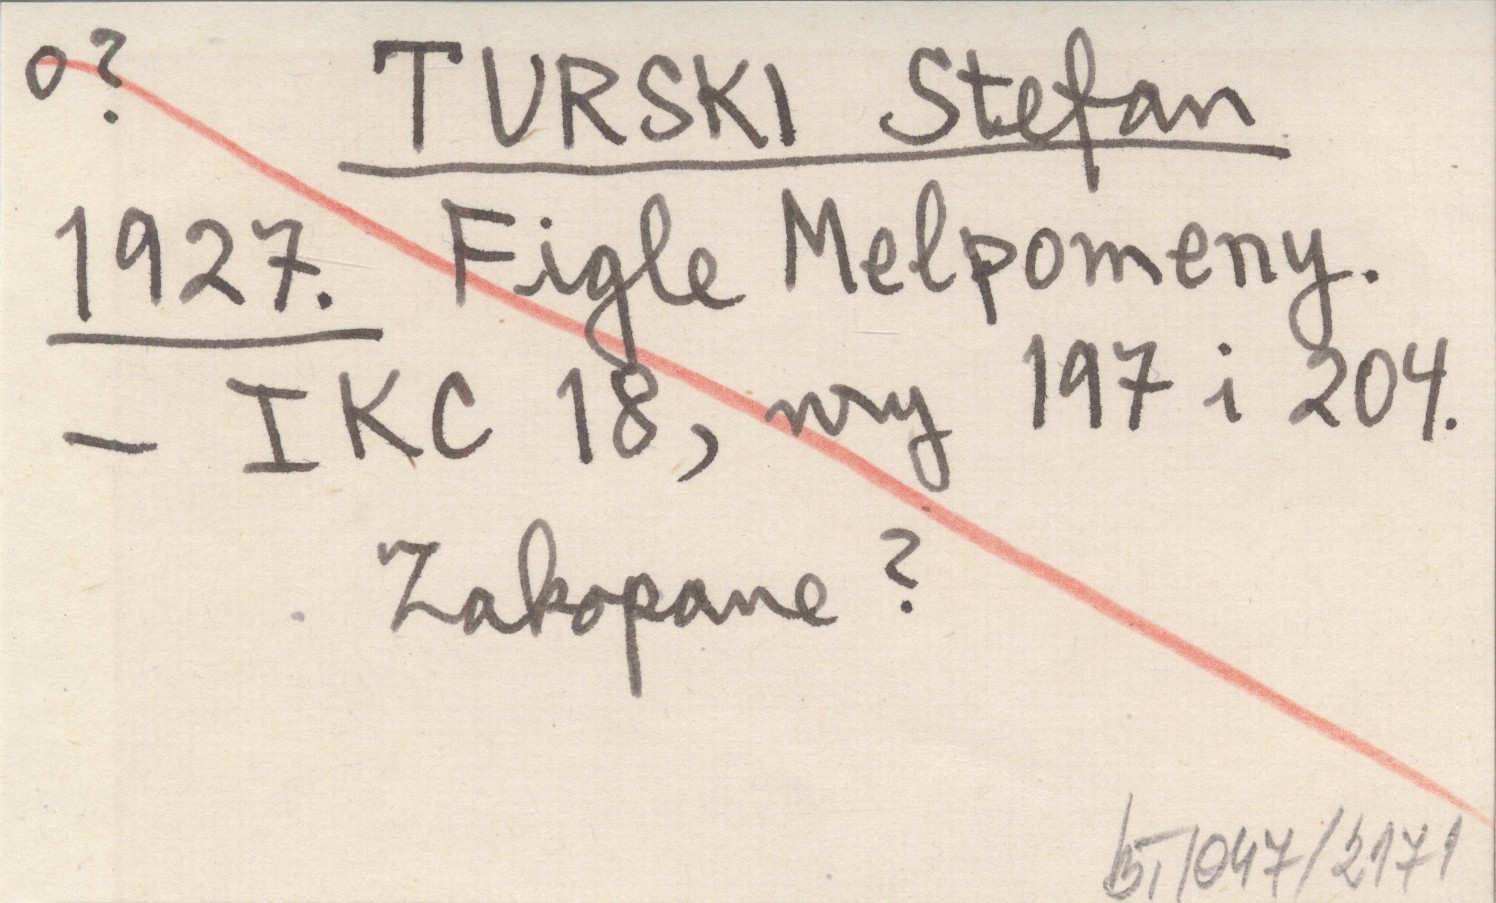 o?
TURSKI Stefan
1927. Figle Melpomeny.
— IKC 18, nry 197 i 204.
Zakopane?
/2171